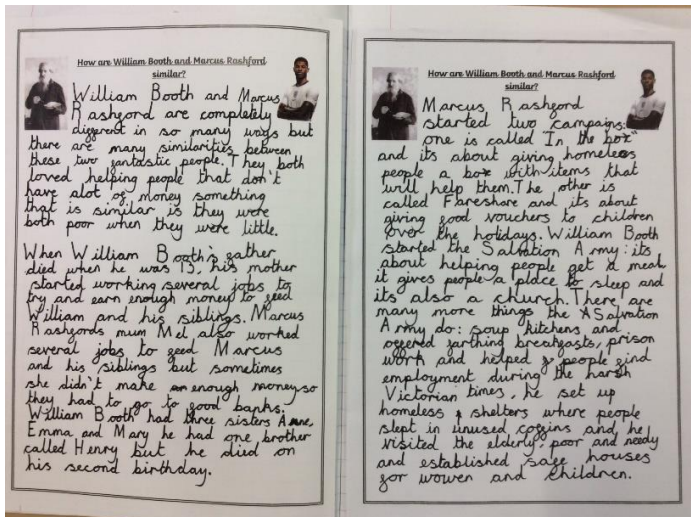 How are William Booth and Marcus Rashford
similar?
William Booth and Marcus
Rashford are completely
different in so many ways but
there are many similarities between
these two fantastic people. They both
loved helping people that don't
have alot of money something
that is similar is they were
both poor when they were little.
When William Booth's father
died when he was 13, his mother
started working several jobs to
try and earn enough money to feed
William and his siblings. Marcus
Rashfords mum Mel also worked
several jobs to feed Marcus
and his siblings but sometimes
she didn't make enough money so
they had to go to food banks.
William Booth had three sisters Anne,
Emma and Mary he had one brother
called Henry but he died on
his second birthday.
How are William Booth and Marcus Rashford
similar?
Marcus Rashford
started two campaigns:
one is called In the box"
and its about giving homeless
people a box with items that
will help them. The other is
called Fareshare and its about
giving food vouchers to children
over the holidays. William Booth
started the Salvation Army: its
about helping people get a meal,
it gives people a place to sleep and
its also a church. There are
many more things the Salvation
Army do: soup kitchens and
offered farthing breakfasts, prison
work and helped people find
employment during the harsh
Victorian times, he set up
homeless shelters where people
slept in unused coffins and he
visited the elderly, poor and needy
and established safe houses
for women and children.